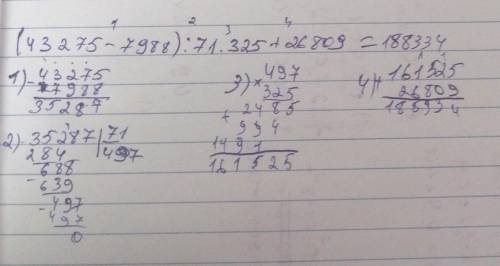 1 2 3 4
(43275-7988):71.325+26809=188334
1) -43275
7988
35287
2) -35287|71
284 497
688
-639
-497
497
0
3) ×497
325
+2485
994
1491
161525
4) +161525
26809
188334